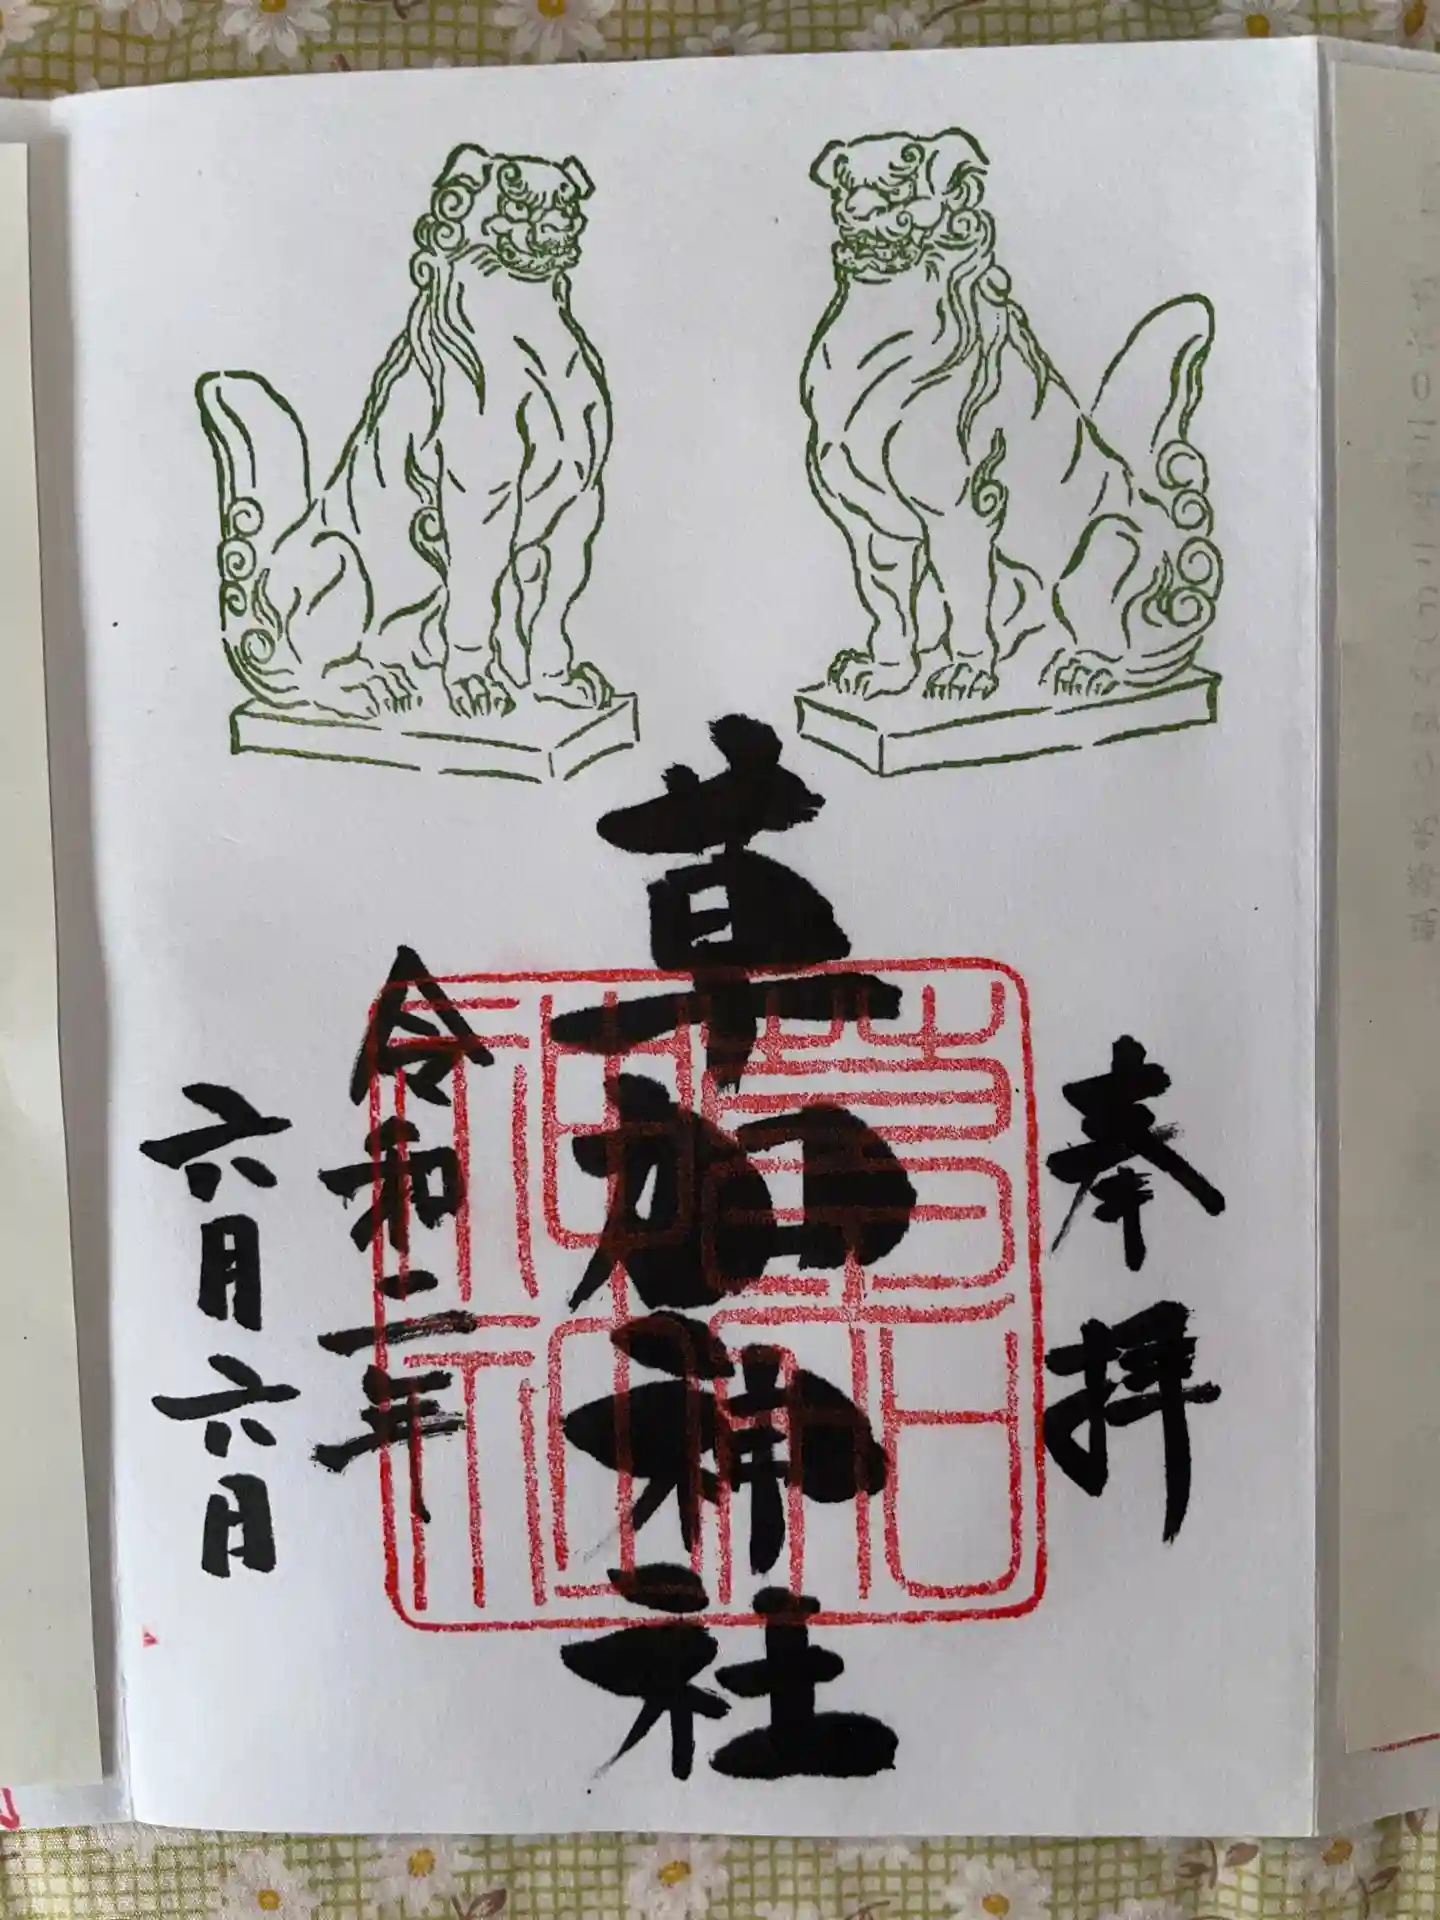 奉拝
草加神社
令和二年
六月六月